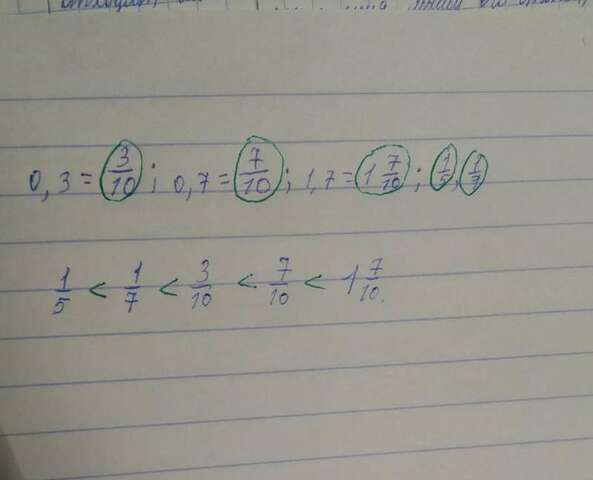 0,3 = 3/10; 0,7 = 7/10; 1,7 = 1 7/10; 1/5, 1/7
1/5 < 1/7 < 3/10 < 7/10 < 1 7/10.